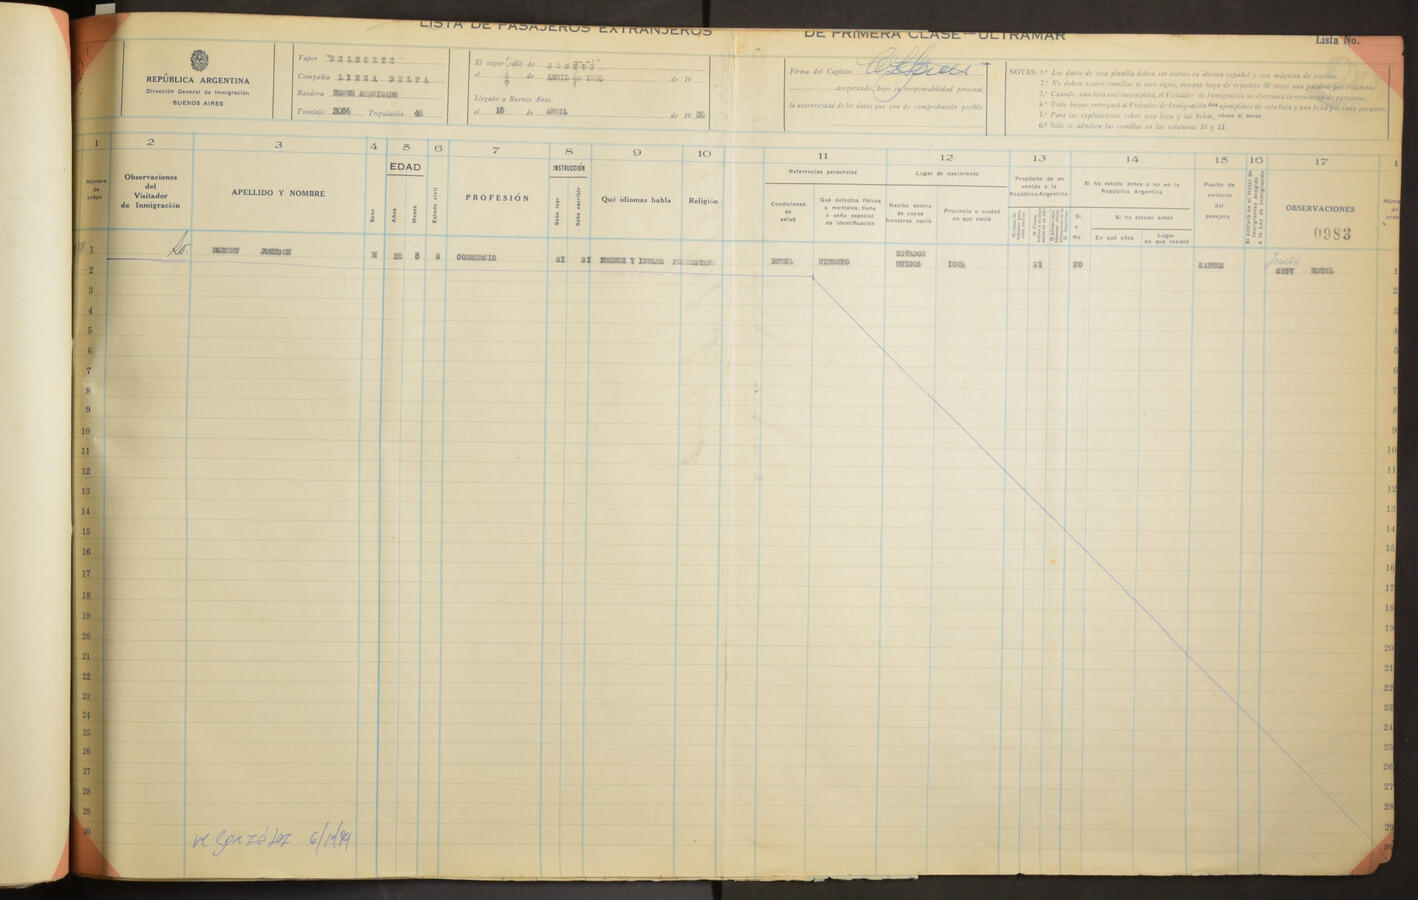 LISTA DE PASAJEROS EXTRANJEROS DE PRIMERA CLASE—ULTRAMAR
Lista No.
REPÚBLICA ARGENTINA
Dirección General de Inmigración
BUENOS AIRES
Vapor "DELNORTE"
Compañía LINEA DELTA
Bandera NORTE AMERICANO
Tonelaje Tripulación
El vapor salió de SANTOS
el de ABRIL de 19
Llegado a Buenos Aires
el de ABRIL de 19
Firma del Capitán
asegurando, bajo su responsabilidad personal,
la autenticidad de los datos que son de comprobación posible.
NOTAS: 1.ª Los datos de esta planilla deben ser escritos en idioma español y con máquina de escribir.
2.ª No deben usarse comillas ni otro signo, aunque haya de repetirse 30 veces una palabra por columna.
3.ª Cuando una lista esté incompleta, el Visitador de Inmigración no efectuará la revisación de pasajeros.
4.ª Todo buque entregará al Visitador de Inmigración dos ejemplares de esta lista y una ficha por cada pasajero.
5.ª Para las explicaciones sobre esta lista y las fichas, véase al dorso.
6.ª Sólo se admiten las comillas en las columnas 10 y 13.
1 2 3 4 5 6 7 8 9 10 11 12 13 14 15 16 17 1
Número de orden
Observaciones del Visitador de Inmigración
APELLIDO Y NOMBRE
Sexo
EDAD
Años
Meses
Estado civil
PROFESIÓN
INSTRUCCIÓN
Sabe leer
Sabe escribir
Qué idiomas habla
Religión
Referencias personales
Condiciones de salud
Qué defectos físicos o mentales tiene o seña especial de identificación
Lugar de nacimiento
Nación dentro de cuyas fronteras nació
Provincia o ciudad en que nació
Propósito de su venida a la República Argentina
Si ha estado antes o no en la República Argentina
Si o No
Si ha estado antes
En qué años
Lugar en que residió
Puerto de embarco del pasajero
Si entrará en el Hotel de Inmigrantes acogido a la Ley de Inmigración
OBSERVACIONES
0983
1 ROBERT JOHNSON M COMERCIO SI SI FRENCH Y INGLES PROTESTANT BUENA NINGUNO ESTADOS UNIDOS IOWA SI NO SANTOS CITY HOTEL 1
2
3 2
4 3
5 4
6 5
7 6
8 7
9 8
10 9
11 10
12 11
13 12
14 13
15 14
16 15
17 16
18 17
19 18
20 19
21 20
22 21
23 22
24 23
25 24
26 25
27 26
28 27
29 28
30 29
30